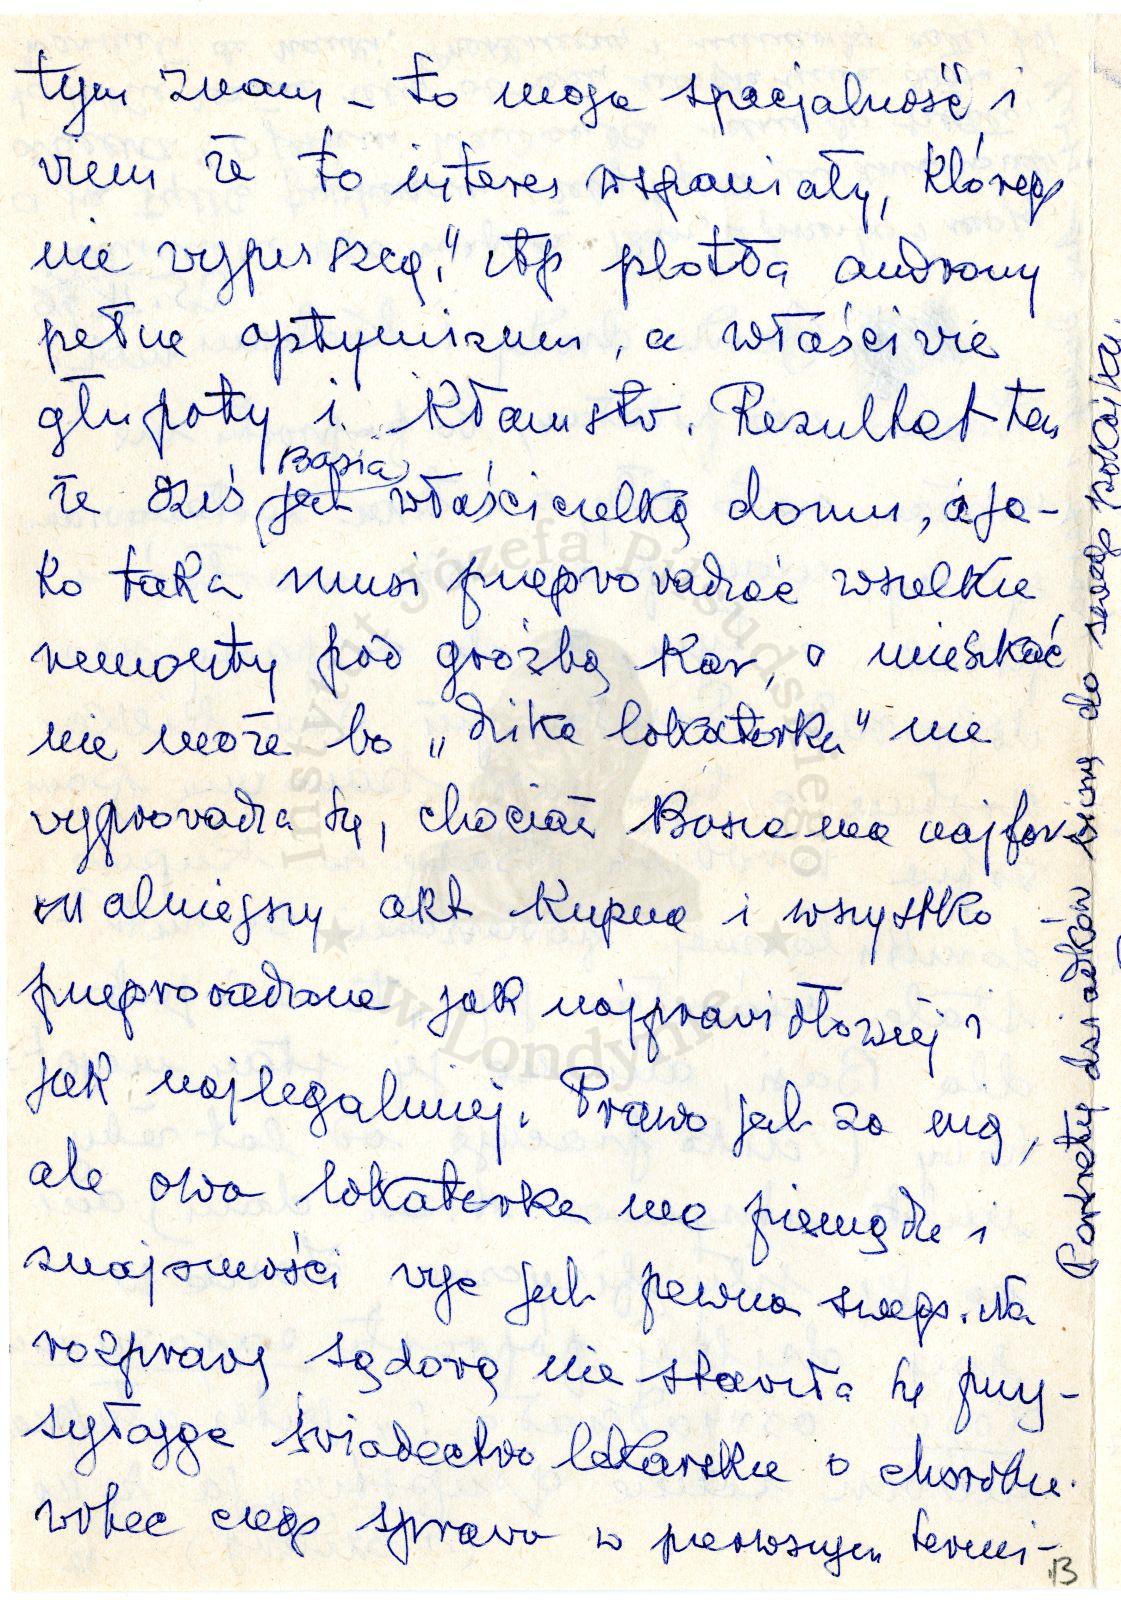 tym znam – to moja specjalność i
wiem że to interes wspaniały, którego
nie wypuszczę," itp plotła androny
pełne optymizmu, a właściwie
głupoty i kłamstw. Rezultat ten
że dziś Basia jest właścicielką domu, a ja-
ko taka musi przeprowadzać wszelkie
remonty pod groźbą kar, a mieszkać
nie może bo „dzika lokatorka" nie
wyprowadza się, chociaż Basia ma najfor
malniejszy akt kupna i wszystko
przeprowadzone jak najprawidłowiej i
jak najlegalniej. Prawo jest za nią,
ale owa lokatorka ma pieniądze i
znajomości więc jest pewna swego. Na
rozprawę sądową nie stawiła się przy-
syłając świadectwo lekarskie o chorobie.
wobec czego sprawa w pierwszym termi-
13
Portrety dziadków wiszą do swego pokoiku.
Instytut Józefa Piłsudskiego
w Londynie